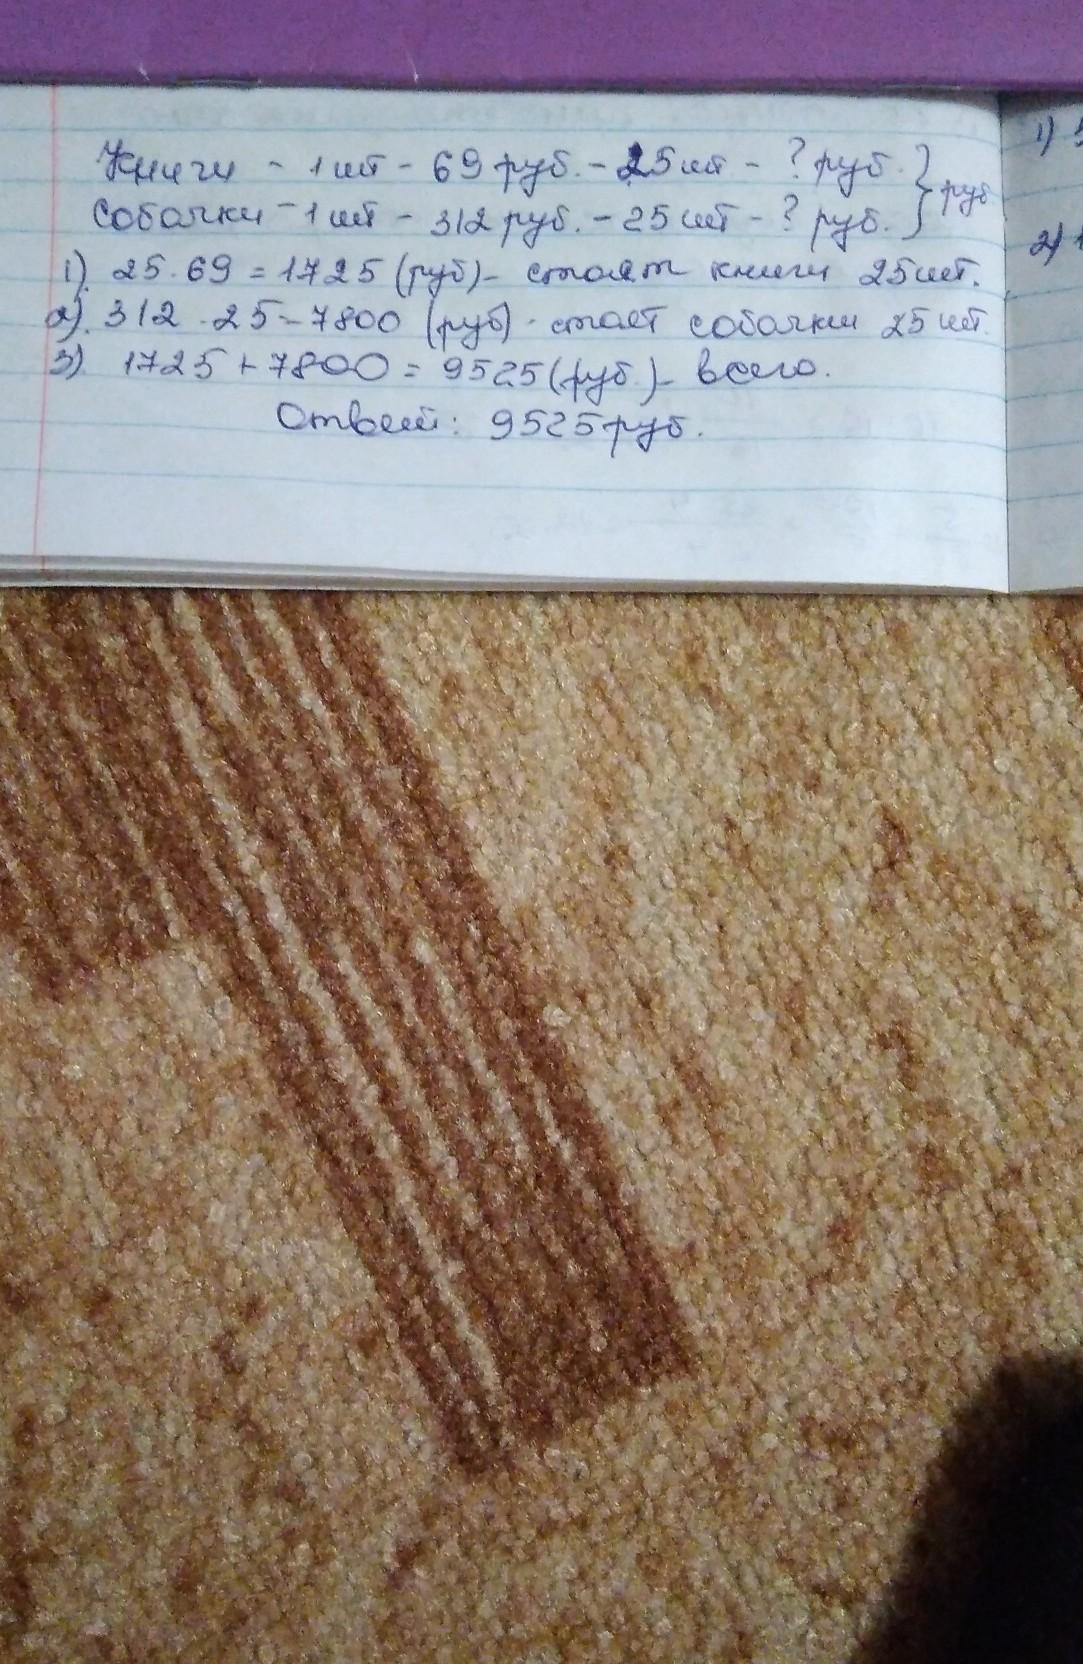 Книги - 1 шт - 69 руб. - 25 шт - ? руб. } руб
Собачки - 1 шт - 312 руб. - 25 шт - ? руб.
1). 25 · 69 = 1725 (руб) - стоят книги 25 шт.
2). 312 · 25 - 7800 (руб) - стоят собачки 25 шт.
3). 1725 + 7800 = 9525 (руб.) - всего.
Ответ: 9525 руб.
1)
2)